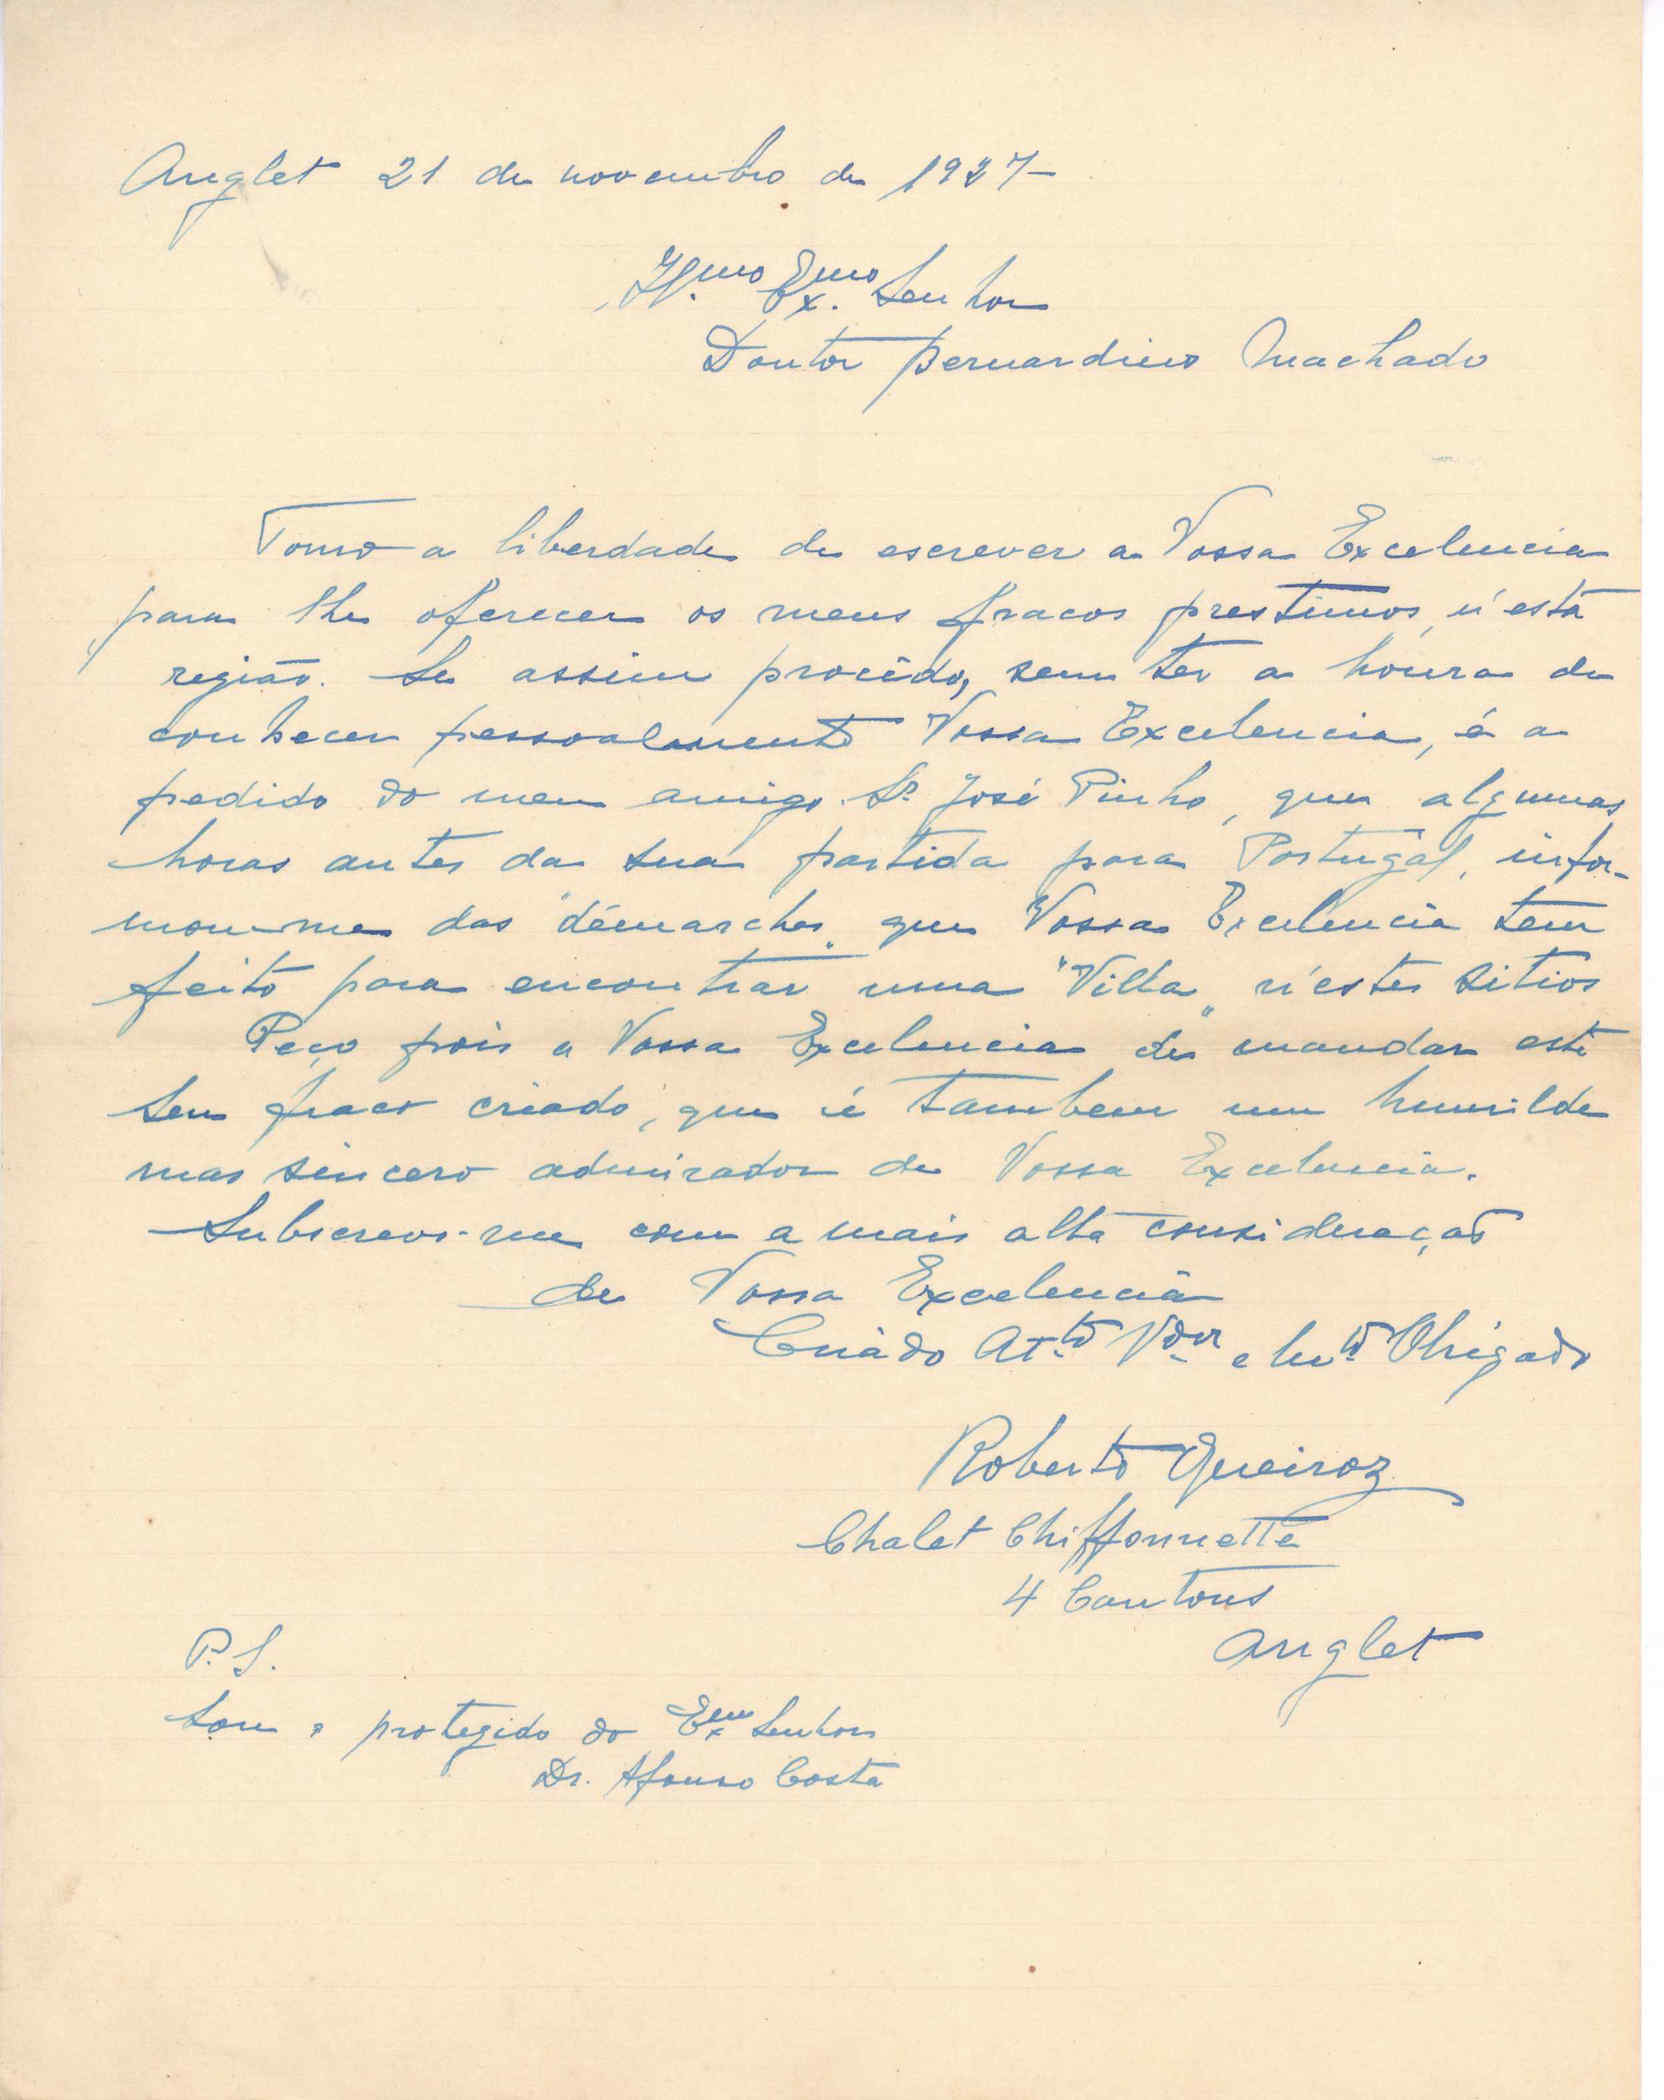 Anglet 21 de novembro de 1927
Il.mo Ex.mo Senhor
Doutor Bernardino Machado
Tomo a liberdade de escrever a Vossa Excelencia
para lhe oferecer os meus fracos prestimos, n'està
região. Se assim procêdo, sem ter a honra de
conhecer pessoalmente Vossa Excelencia, é a
pedido do meu amigo Sr. José Pinho, que algumas
horas antes da sua partida para Portugal, infor-
mou-me das "démarches" que Vossa Excelencia tem
feito para encontrar uma "Villa" n'estes sitios
Peço pois a Vossa Excelencia de mandar este
seu fraco criado, que é tambem um humilde
mas sincero admirador de Vossa Excelencia.
Subscrevo-me com a mais alta consideração
de Vossa Excelencia
Criado At.to V.dor e Mu.to Obrigado
Roberto Queiroz
Chalet Chiffonnette
4 Cantons
Anglet
P.S.
Sou o protegido do Ex.mo Senhor
Dr. Afonso Costa